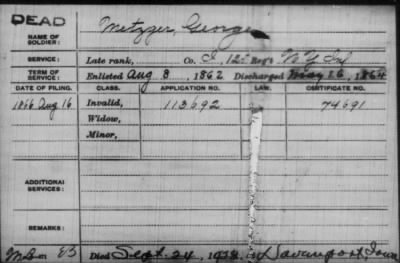 DEAD
NAME OF SOLDIER: Metzger, George
SERVICE: Late rank, Co. I, 12" Reg't N.Y. Inf
TERM OF SERVICE: Enlisted Aug 8, 1862 Discharged May 16, 1864
DATE OF FILING. CLASS. APPLICATION NO. LAW. CERTIFICATE NO.
1866 Aug 16 Invalid, 113692 74691
Widow,
Minor,
ADDITIONAL SERVICES:
REMARKS:
Died Sept. 24, at Davenport Iowa